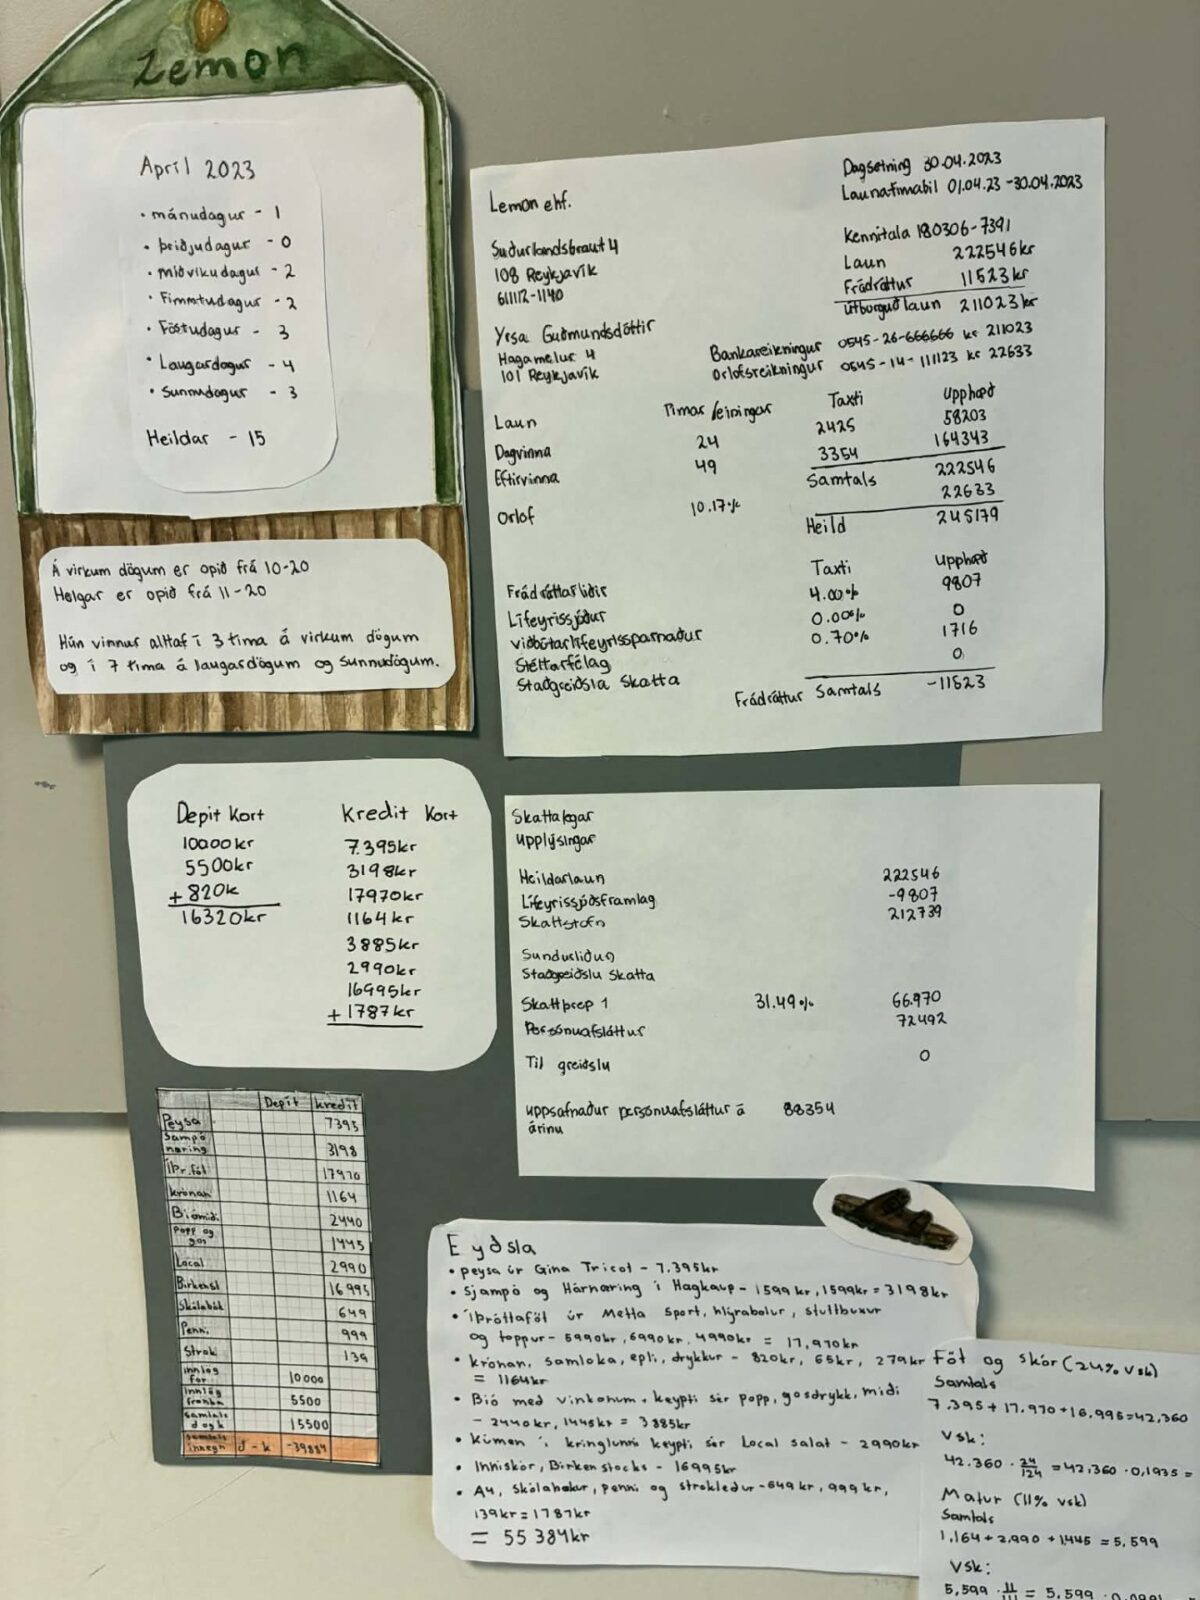 Lemon
Apríl 2023
• mánudagur - 1
• Þriðjudagur - 0
• miðvikudagur - 2
• Fimmtudagur - 2
• Föstudagur - 3
• Laugardagur - 4
• Sunnudagur - 3
Heildar - 15
Á virkum dögum er opið frá 10-20
Helgar er opið frá 11-20
Hún vinnur alltaf í 3 tíma á virkum dögum
og í 7 tíma á laugardögum og sunnudögum.
Dagsetning 30.04.2023
Launatímabil 01.04.23 -30.04.2023
Lemon ehf.
Suðurlandsbraut 4
108 Reykjavík
611112-1140
Kennitala 180306-7391
Laun 222546kr
Frádráttur 11523kr
útborguð laun 211023kr
Yrsa Guðmundsdóttir
Hagamelur 4
101 Reykjavík
Bankareikningur 0545-26-666666 kr 211023
Orlofsreikningur 0545-14-111123 kr 22633
Laun Tímar /einingar Taxti Upphæð
Dagvinna 24 2425 58203
Eftirvinna 49 3354 164343
Samtals 222546
Orlof 10.17% 22633
Heild 245179
Taxti Upphæð
Frádráttarliðir 4.00% 9807
Lífeyrissjóður 0.00% 0
viðbótarlífeyrissparnaður 0.70% 1716
Stéttarfélag 0
Staðgreiðsla Skatta
Frádráttur Samtals -11523
Depit Kort
10000kr
5500kr
+820k
16320kr
Kredit Kort
7.395kr
3198kr
17970kr
1164kr
3885kr
2990kr
16995kr
+1787kr
Skattalegar
upplýsingar
Heildarlaun 222546
Lífeyrissjóðsframlag -9807
Skattstofn 212739
Sundurliðun
Staðgreiðslu Skatta
Skattþrep 1 31.49% 66.970
Persónuafsláttur 72492
Til greiðslu 0
uppsafnaður persónuafsláttur á 88354
árinu
Depit kredit
Peysa 7395
Sampó
næring 3198
Íþr.föt 17970
krónan 1164
Bíómiði 2440
Popp og
gos 1445
Local 2990
Birkenst 16995
Skólabók 649
Penni 999
Strok 139
innlög 10000
innlög 5500
samtals
d og k 15500
samtals
inneign d - k -39884
Eyðsla
• peysa úr Gina Tricot - 7.395kr
• Sjampó og Hárnæring í Hagkaup - 1599kr, 1599kr = 3198kr
• Íþróttaföt úr Metta Sport, hlýrabolur, stuttbuxur
og toppur - 5990kr, 6990kr, 4990kr = 17,970kr
• krónan, samloka, epli, drykkur - 820kr, 65kr, 279kr
= 1164kr
• Bíó með vinkonum, keypti sér popp, gosdrykk, miði
- 2440kr, 1445kr = 3885kr
• Kúmen í kringlunni keypti sér Local salat - 2990kr
• Inniskór, Birkenstocks - 16995kr
• A4, skólabækur, penni og strokleður - 649kr, 999kr,
139kr = 1787kr
= 55384kr
Föt og skór (24% vsk)
Samtals
7.395 + 17.970 + 16.995 = 42,360
Vsk:
42.360 · 24/124 = 42.360 · 0,1935 =
Matur (11% vsk)
Samtals
1,164 + 2,990 + 1445 = 5,599
Vsk: